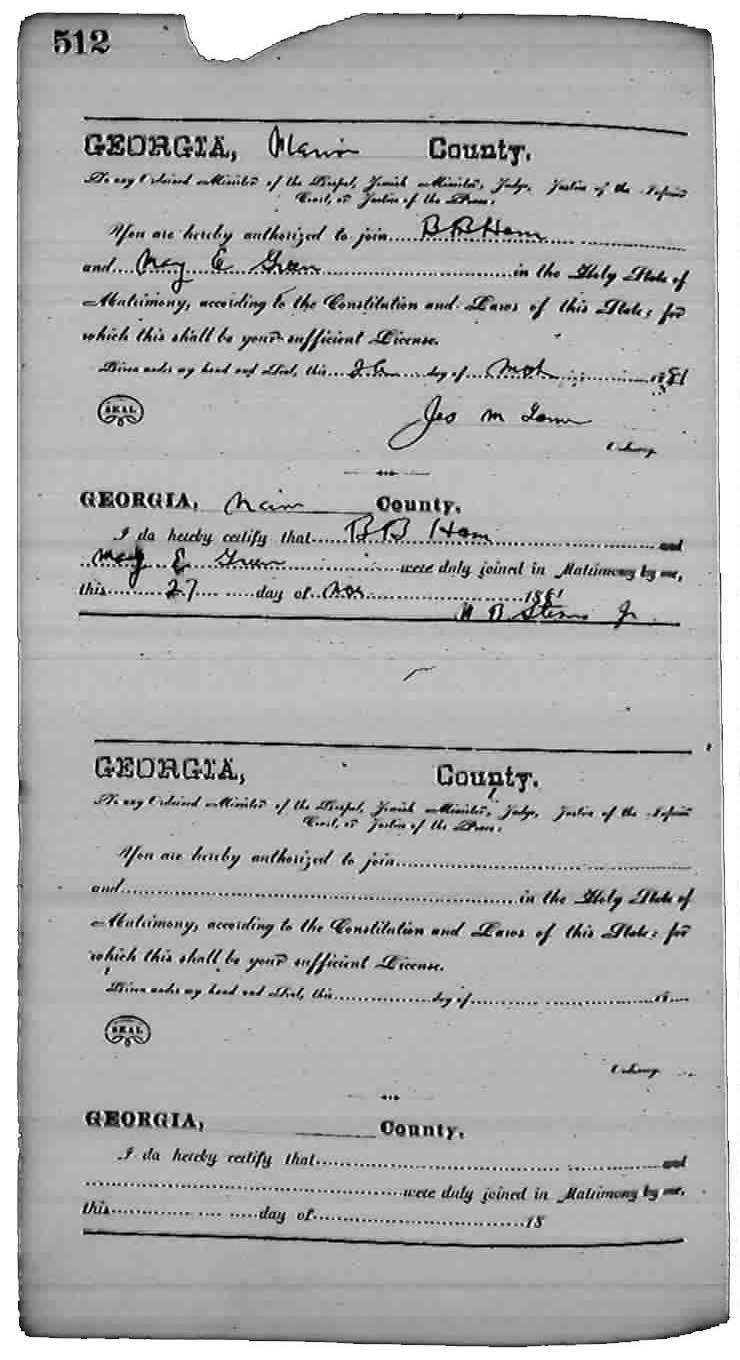 512
GEORGIA, Marion County.
To any Ordained Minister of the Gospel, Jewish Minister, Judge, Justice of the Inferior
Court, or Justice of the Peace:
You are hereby authorized to join B B Ham
and May E Green in the Holy State of
Matrimony, according to the Constitution and Laws of this State; for
which this shall be your sufficient License.
Given under my hand and Seal, this 26 day of 1881
SEAL
Jas M
Ordinary.
GEORGIA, Marion County.
I do hereby certify that B B Ham and
May E Green were duly joined in Matrimony by me,
this 27 day of Nov 1881
B
GEORGIA, County.
To any Ordained Minister of the Gospel, Jewish Minister, Judge, Justice of the Inferior
Court, or Justice of the Peace:
You are hereby authorized to join
and in the Holy State of
Matrimony, according to the Constitution and Laws of this State; for
which this shall be your sufficient License.
Given under my hand and Seal, this day of 18
SEAL
Ordinary.
GEORGIA, County.
I do hereby certify that and
were duly joined in Matrimony by me,
this day of 18